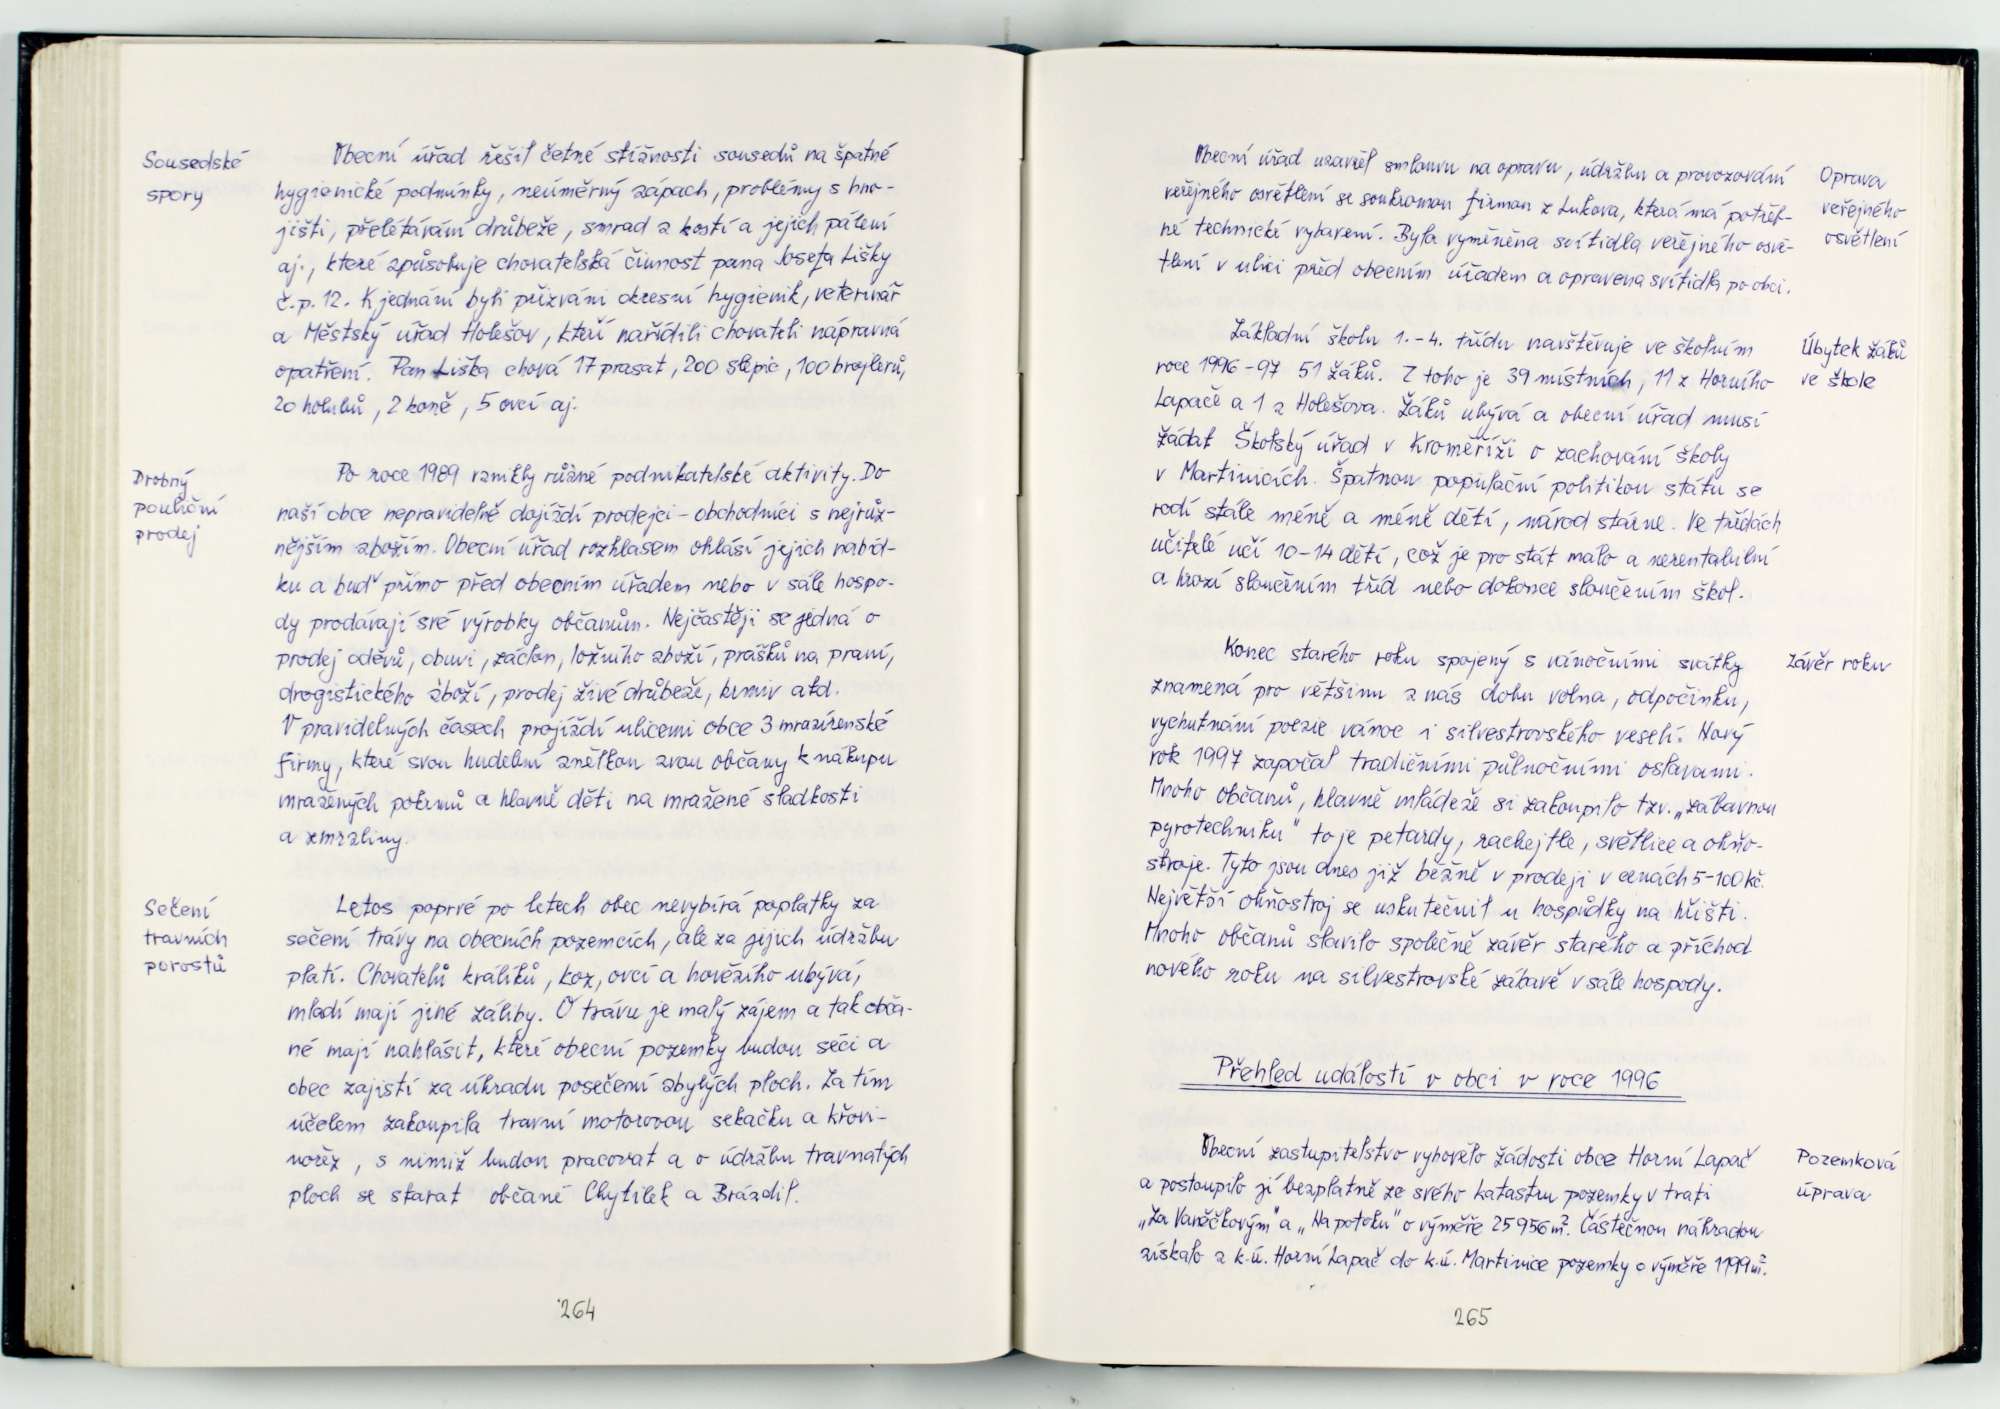 Sousedské
spory
Obecní úřad řešil četné stížnosti sousedů na špatné
hygienické podmínky, neúměrný zápach, problémy s hno-
jišti, přelétávání drůbeže, smrad z kostí a jejich pálení
aj., které způsobuje chovatelská činnost pana Josefa Lišky
č.p. 12. K jednání byli přizváni okresní hygienik, veterinář
a Městský úřad Holešov, kteří nařídili chovateli nápravná
opatření. Pan Liška chová 17 prasat, 200 slepic, 100 brojlerů,
20 holubů, 2 koně, 5 ovcí aj.
Drobný
pouliční
prodej
Po roce 1989 vznikly různé podnikatelské aktivity. Do
naší obce nepravidelně dojíždí prodejci - obchodníci s nejrůz-
nějším zbožím. Obecní úřad rozhlasem ohlásí jejich nabíd-
ku a buď přímo před obecním úřadem nebo v sále hospo-
dy prodávají své výrobky občanům. Nejčastěji se jedná o
prodej oděvů, obuvi, záclon, ložního zboží, prášků na praní,
drogistického zboží, prodej živé drůbeže, krmiv atd.
V pravidelných časech projíždí ulicemi obce 3 mrazírenské
firmy, které svou hudební znělkou zvou občany k nákupu
mražených pokrmů a hlavně děti na mražené sladkosti
a zmrzliny.
Sečení
travních
porostů
Letos poprvé po letech obec nevybírá poplatky za
sečení trávy na obecních pozemcích, ale za jejich údržbu
platí. Chovatelů králíků, koz, ovcí a hovězího ubývá,
mladí mají jiné záliby. O trávu je malý zájem a tak obča-
né mají nahlásit, které obecní pozemky budou séci a
obec zajistí za úhradu posečení zbylých ploch. Za tím
účelem zakoupila travní motorovou sekačku a křovi-
nořez, s nimiž budou pracovat a o údržbu travnatých
ploch se starat občané Chytilek a Brázdil.
264
Obecní úřad uzavřel smlouvu na opravu, údržbu a provozování
veřejného osvětlení se soukromou firmou z Lukova, která má potřeb-
né technické vybavení. Byla vyměněna svítidla veřejného osvě-
tlení v ulici před obecním úřadem a opravena svítidla po obci.
Oprava
veřejného
osvětlení
Základní školu 1.-4. třídu navštěvuje ve školním
roce 1996-97 51 žáků. Z toho je 39 místních, 11 z Horního
Lapače a 1 z Holešova. Žáků ubývá a obecní úřad musí
žádat Školský úřad v Kroměříži o zachování školy
v Martinicích. Špatnou populační politikou státu se
rodí stále méně a méně dětí, národ stárne. Ve třídách
učitelé učí 10-14 dětí, což je pro stát málo a nerentabilní
a hrozí sloučením tříd nebo dokonce sloučením škol.
Úbytek žáků
ve škole
Konec starého roku spojený s vánočními svátky
znamená pro většinu z nás dobu volna, odpočinku,
vychutnání poezie vánoc i silvestrovského veselí. Nový
rok 1997 započal tradičními půlnočními oslavami.
Mnoho občanů, hlavně mládeže si zakoupilo tzv. „zábavnou
pyrotechniku" to je petardy, rachejtle, světlice a ohňo-
stroje. Tyto jsou dnes již běžně v prodeji v cenách 5-100 kč.
Největší ohňostroj se uskutečnil u hospůdky na hřišti.
Mnoho občanů slavilo společně závěr starého a příchod
nového roku na silvestrovské zábavě v sále hospody.
Závěr roku
Přehled událostí v obci v roce 1996
Obecní zastupitelstvo vyhovělo žádosti obce Horní Lapač
a postoupilo jí bezplatně ze svého katastru pozemky v trati
„Za Vaněčkovým" a „Na potoku" o výměře 25956 m². Částečnou náhradou
získalo z k.ú. Horní Lapač do k.ú. Martinice pozemky o výměře 1199 m².
Pozemková
úprava
265